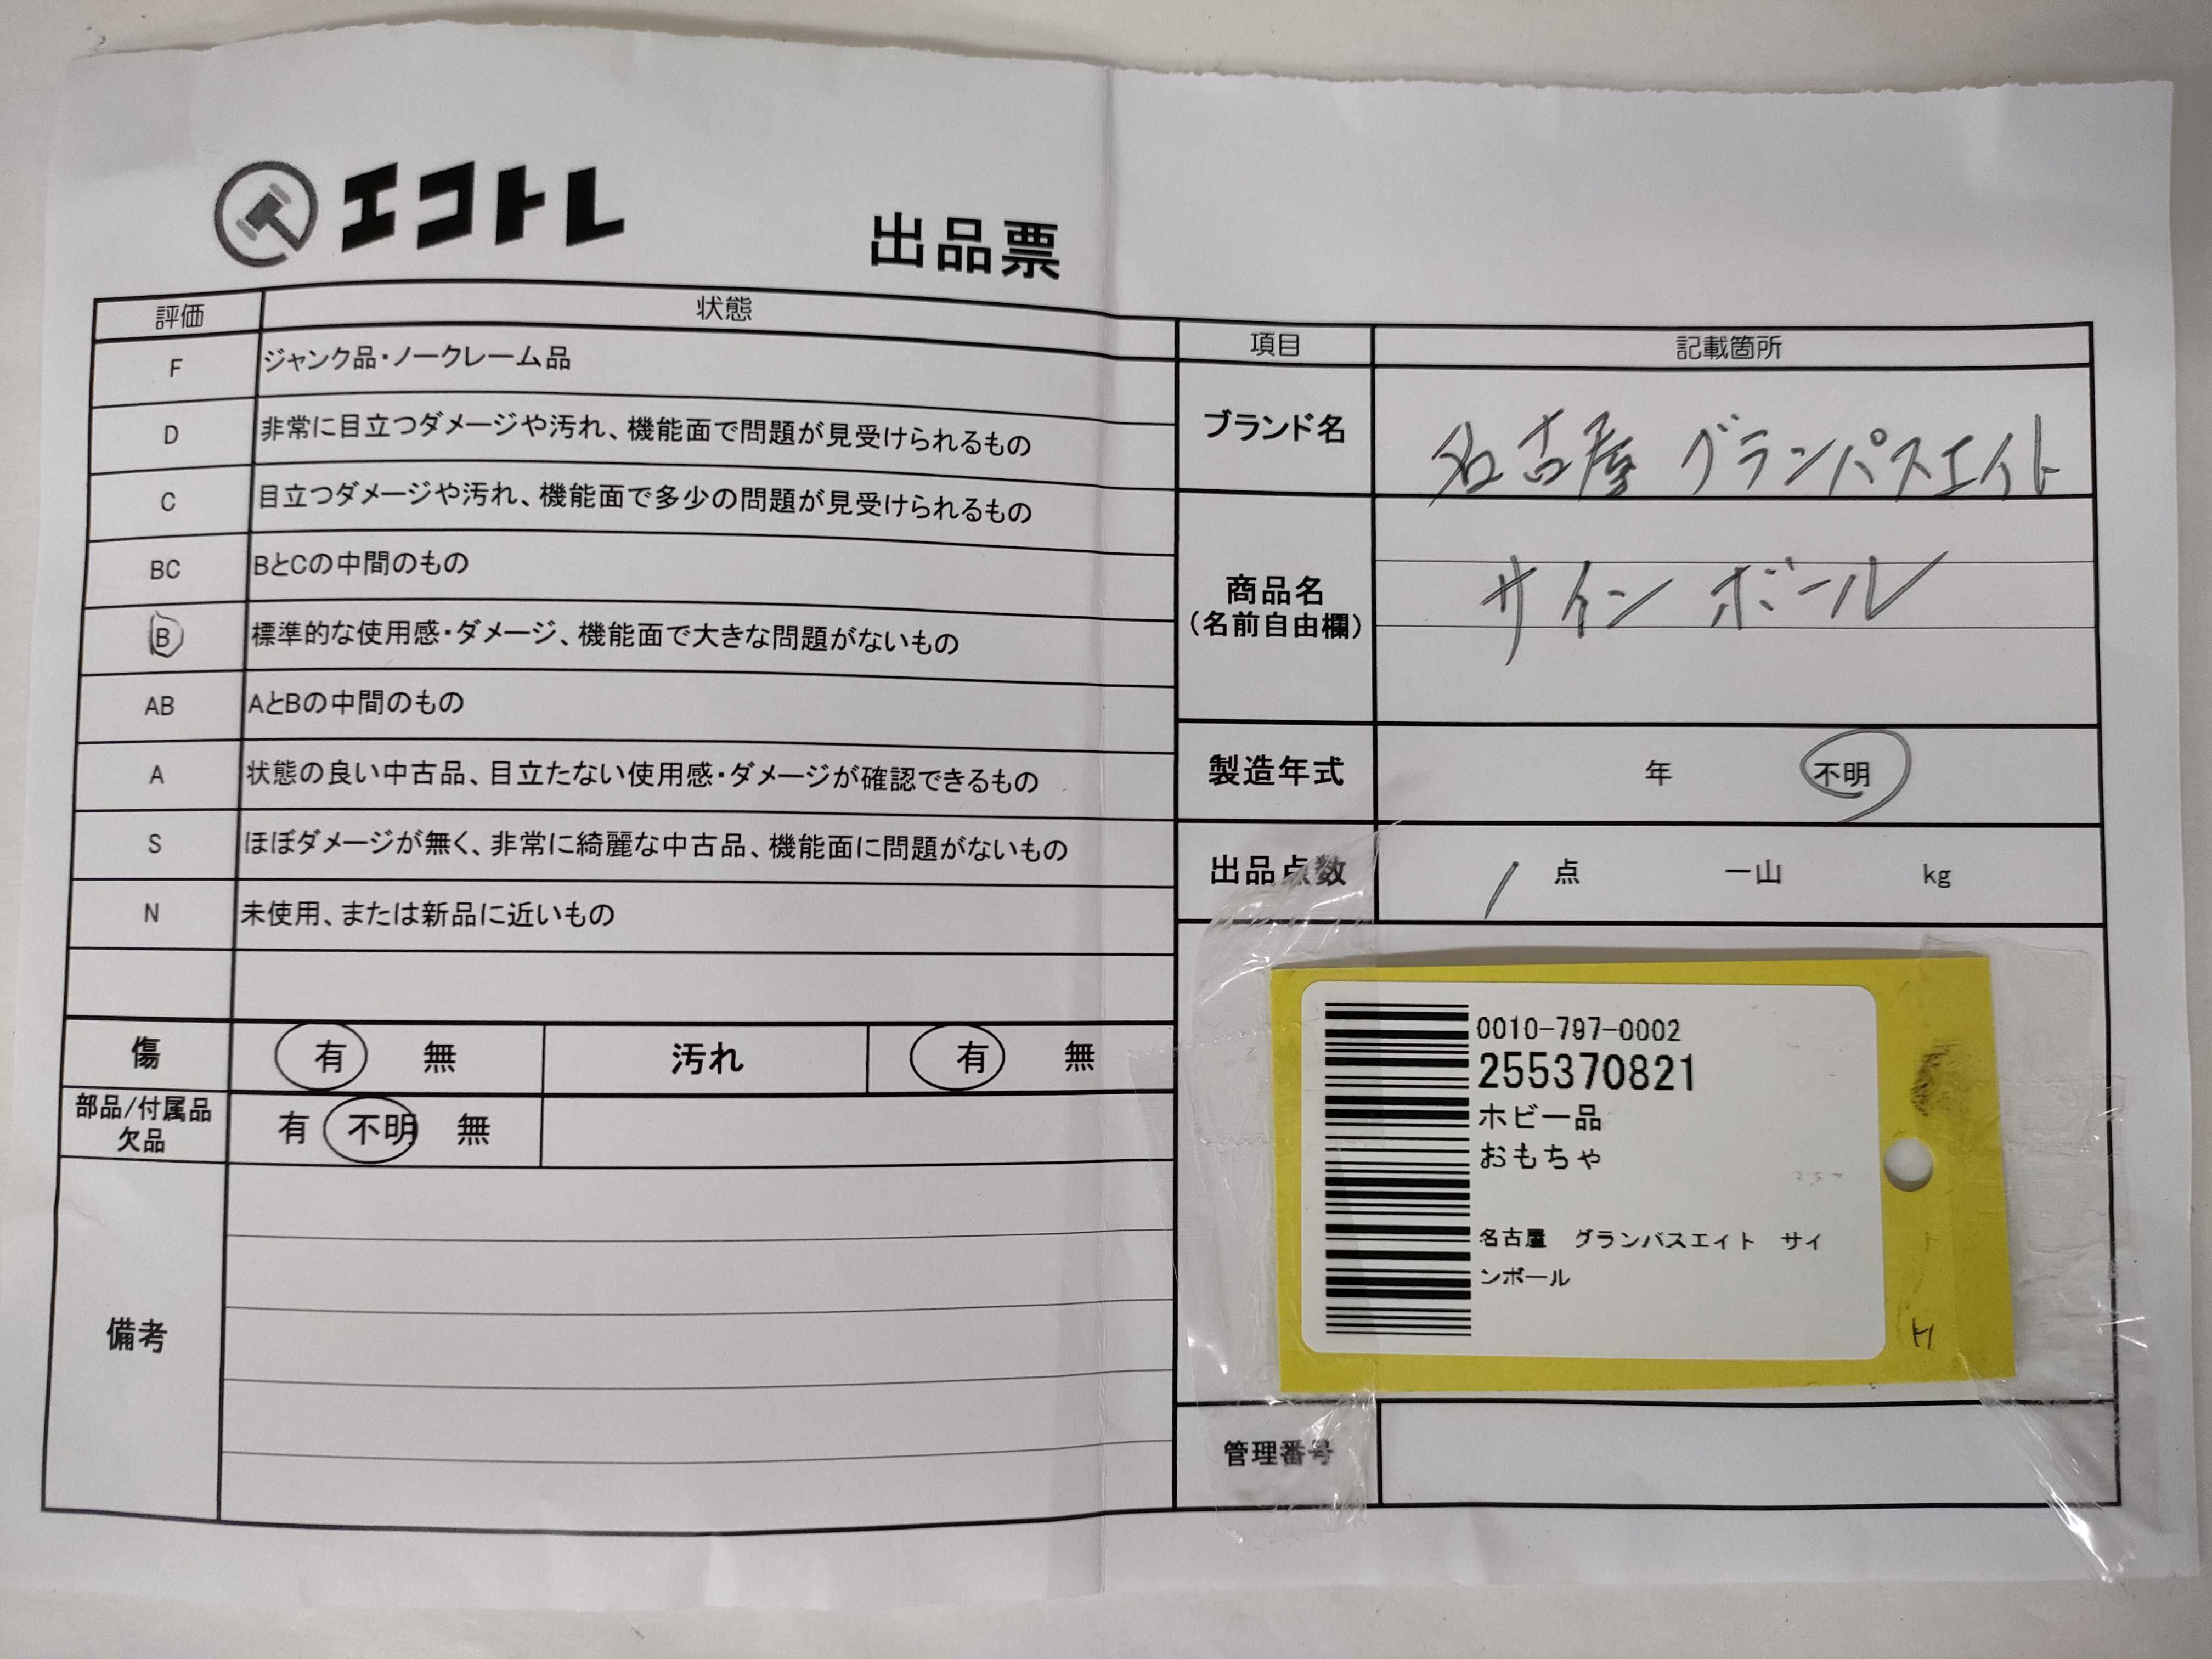 エコトレ
出品票
評価 状態
F ジャンク品・ノークレーム品
D 非常に目立つダメージや汚れ、機能面で問題が見受けられるもの
C 目立つダメージや汚れ、機能面で多少の問題が見受けられるもの
BC BとCの中間のもの
B 標準的な使用感・ダメージ、機能面で大きな問題がないもの
AB AとBの中間のもの
A 状態の良い中古品、目立たない使用感・ダメージが確認できるもの
S ほぼダメージが無く、非常に綺麗な中古品、機能面に問題がないもの
N 未使用、または新品に近いもの
傷 有 無 汚れ 有 無
部品/付属品
欠品
有 不明 無
備考
項目 記載箇所
ブランド名 名古屋 グランパスエイト
商品名
(名前自由欄)
サインボール
製造年式 年 不明
出品点数 1 点 一山 kg
0010-797-0002
255370821
ホビー品
おもちゃ
名古屋 グランパスエイト サイ
ンボール
管理番号